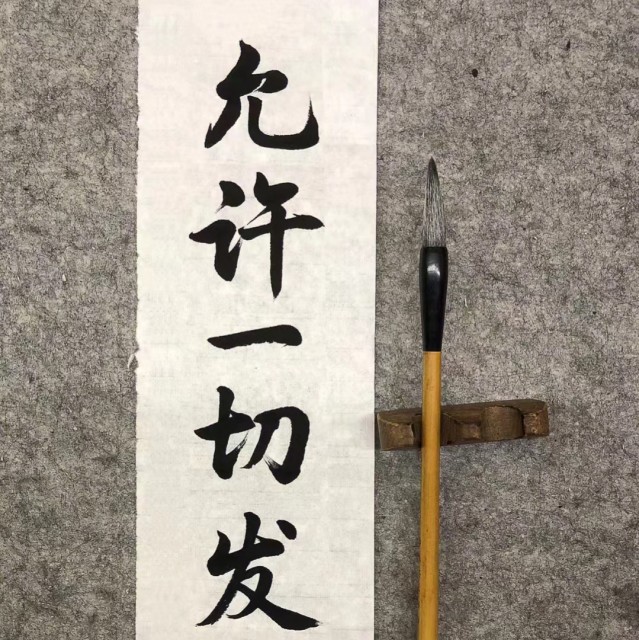 允许一切发